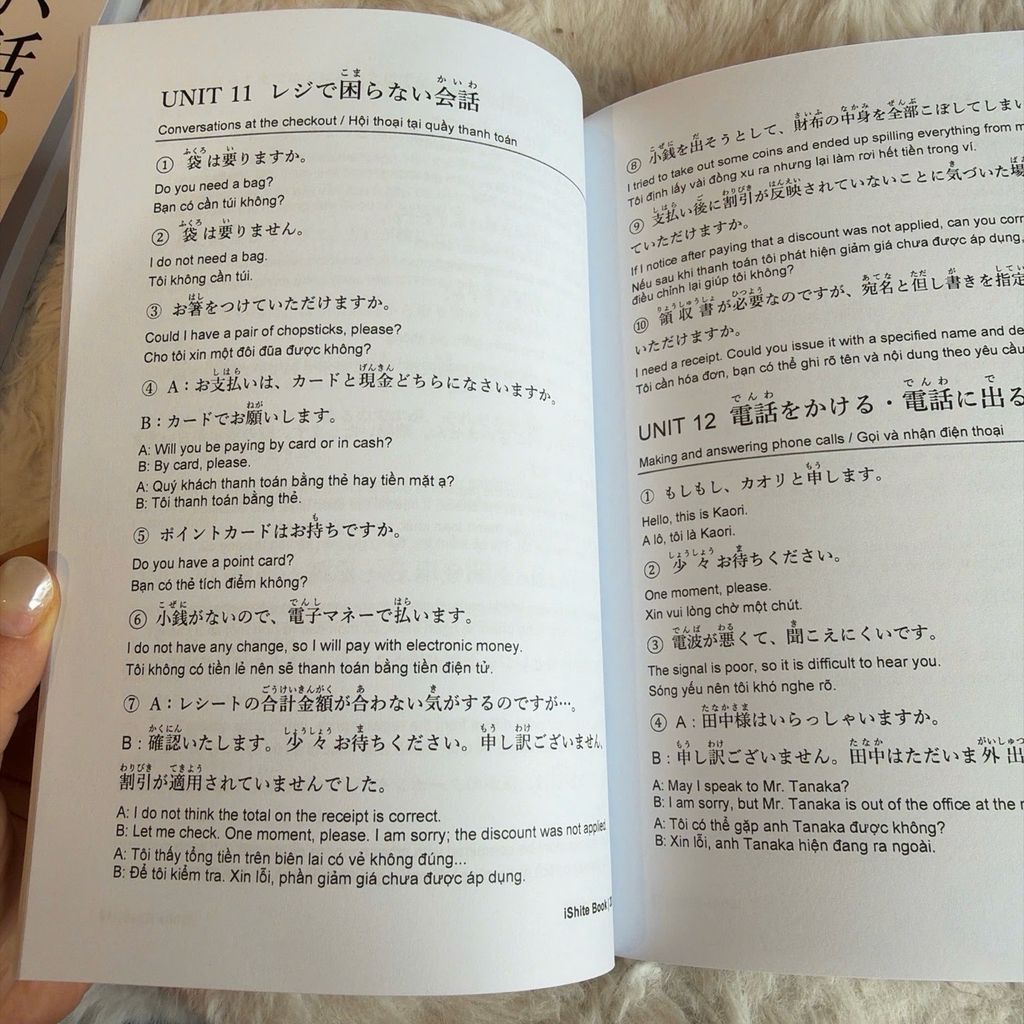 話
UNIT 11 レジで困らない会話
Conversations at the checkout / Hội thoại tại quầy thanh toán
① 袋は要りますか。
Do you need a bag?
Bạn có cần túi không?
② 袋は要りません。
I do not need a bag.
Tôi không cần túi.
③ お箸をつけていただけますか。
Could I have a pair of chopsticks, please?
Cho tôi xin một đôi đũa được không?
④ A：お支払いは、カードと現金どちらになさいますか。
B：カードでお願いします。
A: Will you be paying by card or in cash?
B: By card, please.
A: Quý khách thanh toán bằng thẻ hay tiền mặt ạ?
B: Tôi thanh toán bằng thẻ.
⑤ ポイントカードはお持ちですか。
Do you have a point card?
Bạn có thẻ tích điểm không?
⑥ 小銭がないので、電子マネーで払います。
I do not have any change, so I will pay with electronic money.
Tôi không có tiền lẻ nên sẽ thanh toán bằng tiền điện tử.
⑦ A：レシートの合計金額が合わない気がするのですが…。
B：確認いたします。少々お待ちください。申し訳ございません、
割引が適用されていませんでした。
A: I do not think the total on the receipt is correct.
B: Let me check. One moment, please. I am sorry; the discount was not applied
A: Tôi thấy tổng tiền trên biên lai có vẻ không đúng...
B: Để tôi kiểm tra. Xin lỗi, phần giảm giá chưa được áp dụng.
iShite Book
⑧ 小銭を出そうとして、財布の中身を全部こぼしてしまい
I tried to take out some coins and ended up spilling everything from
Tôi định lấy vài đồng xu ra nhưng lại làm rơi hết tiền trong ví.
⑨ 支払い後に割引が反映されていないことに気づいた場
ていただけますか。
If I notice after paying that a discount was not applied, can you
Nếu sau khi thanh toán tôi phát hiện giảm giá chưa được áp dụng,
điều chỉnh lại giúp tôi không?
⑩ 領収書が必要なのですが、宛名と但し書きを指定
いただけますか。
I need a receipt. Could you issue it with a specified name and
Tôi cần hóa đơn, bạn có thể ghi rõ tên và nội dung theo yêu cầu
UNIT 12 電話をかける・電話に出る
Making and answering phone calls / Gọi và nhận điện thoại
① もしもし、カオリと申します。
Hello, this is Kaori.
A lô, tôi là Kaori.
② 少々お待ちください。
One moment, please.
Xin vui lòng chờ một chút.
③ 電波が悪くて、聞こえにくいです。
The signal is poor, so it is difficult to hear you.
Sóng yếu nên tôi khó nghe rõ.
④ A：田中様はいらっしゃいますか。
B：申し訳ございません。田中はただいま外出
A: May I speak to Mr. Tanaka?
B: I am sorry, but Mr. Tanaka is out of the office at the
A: Tôi có thể gặp anh Tanaka được không?
B: Xin lỗi, anh Tanaka hiện đang ra ngoài.